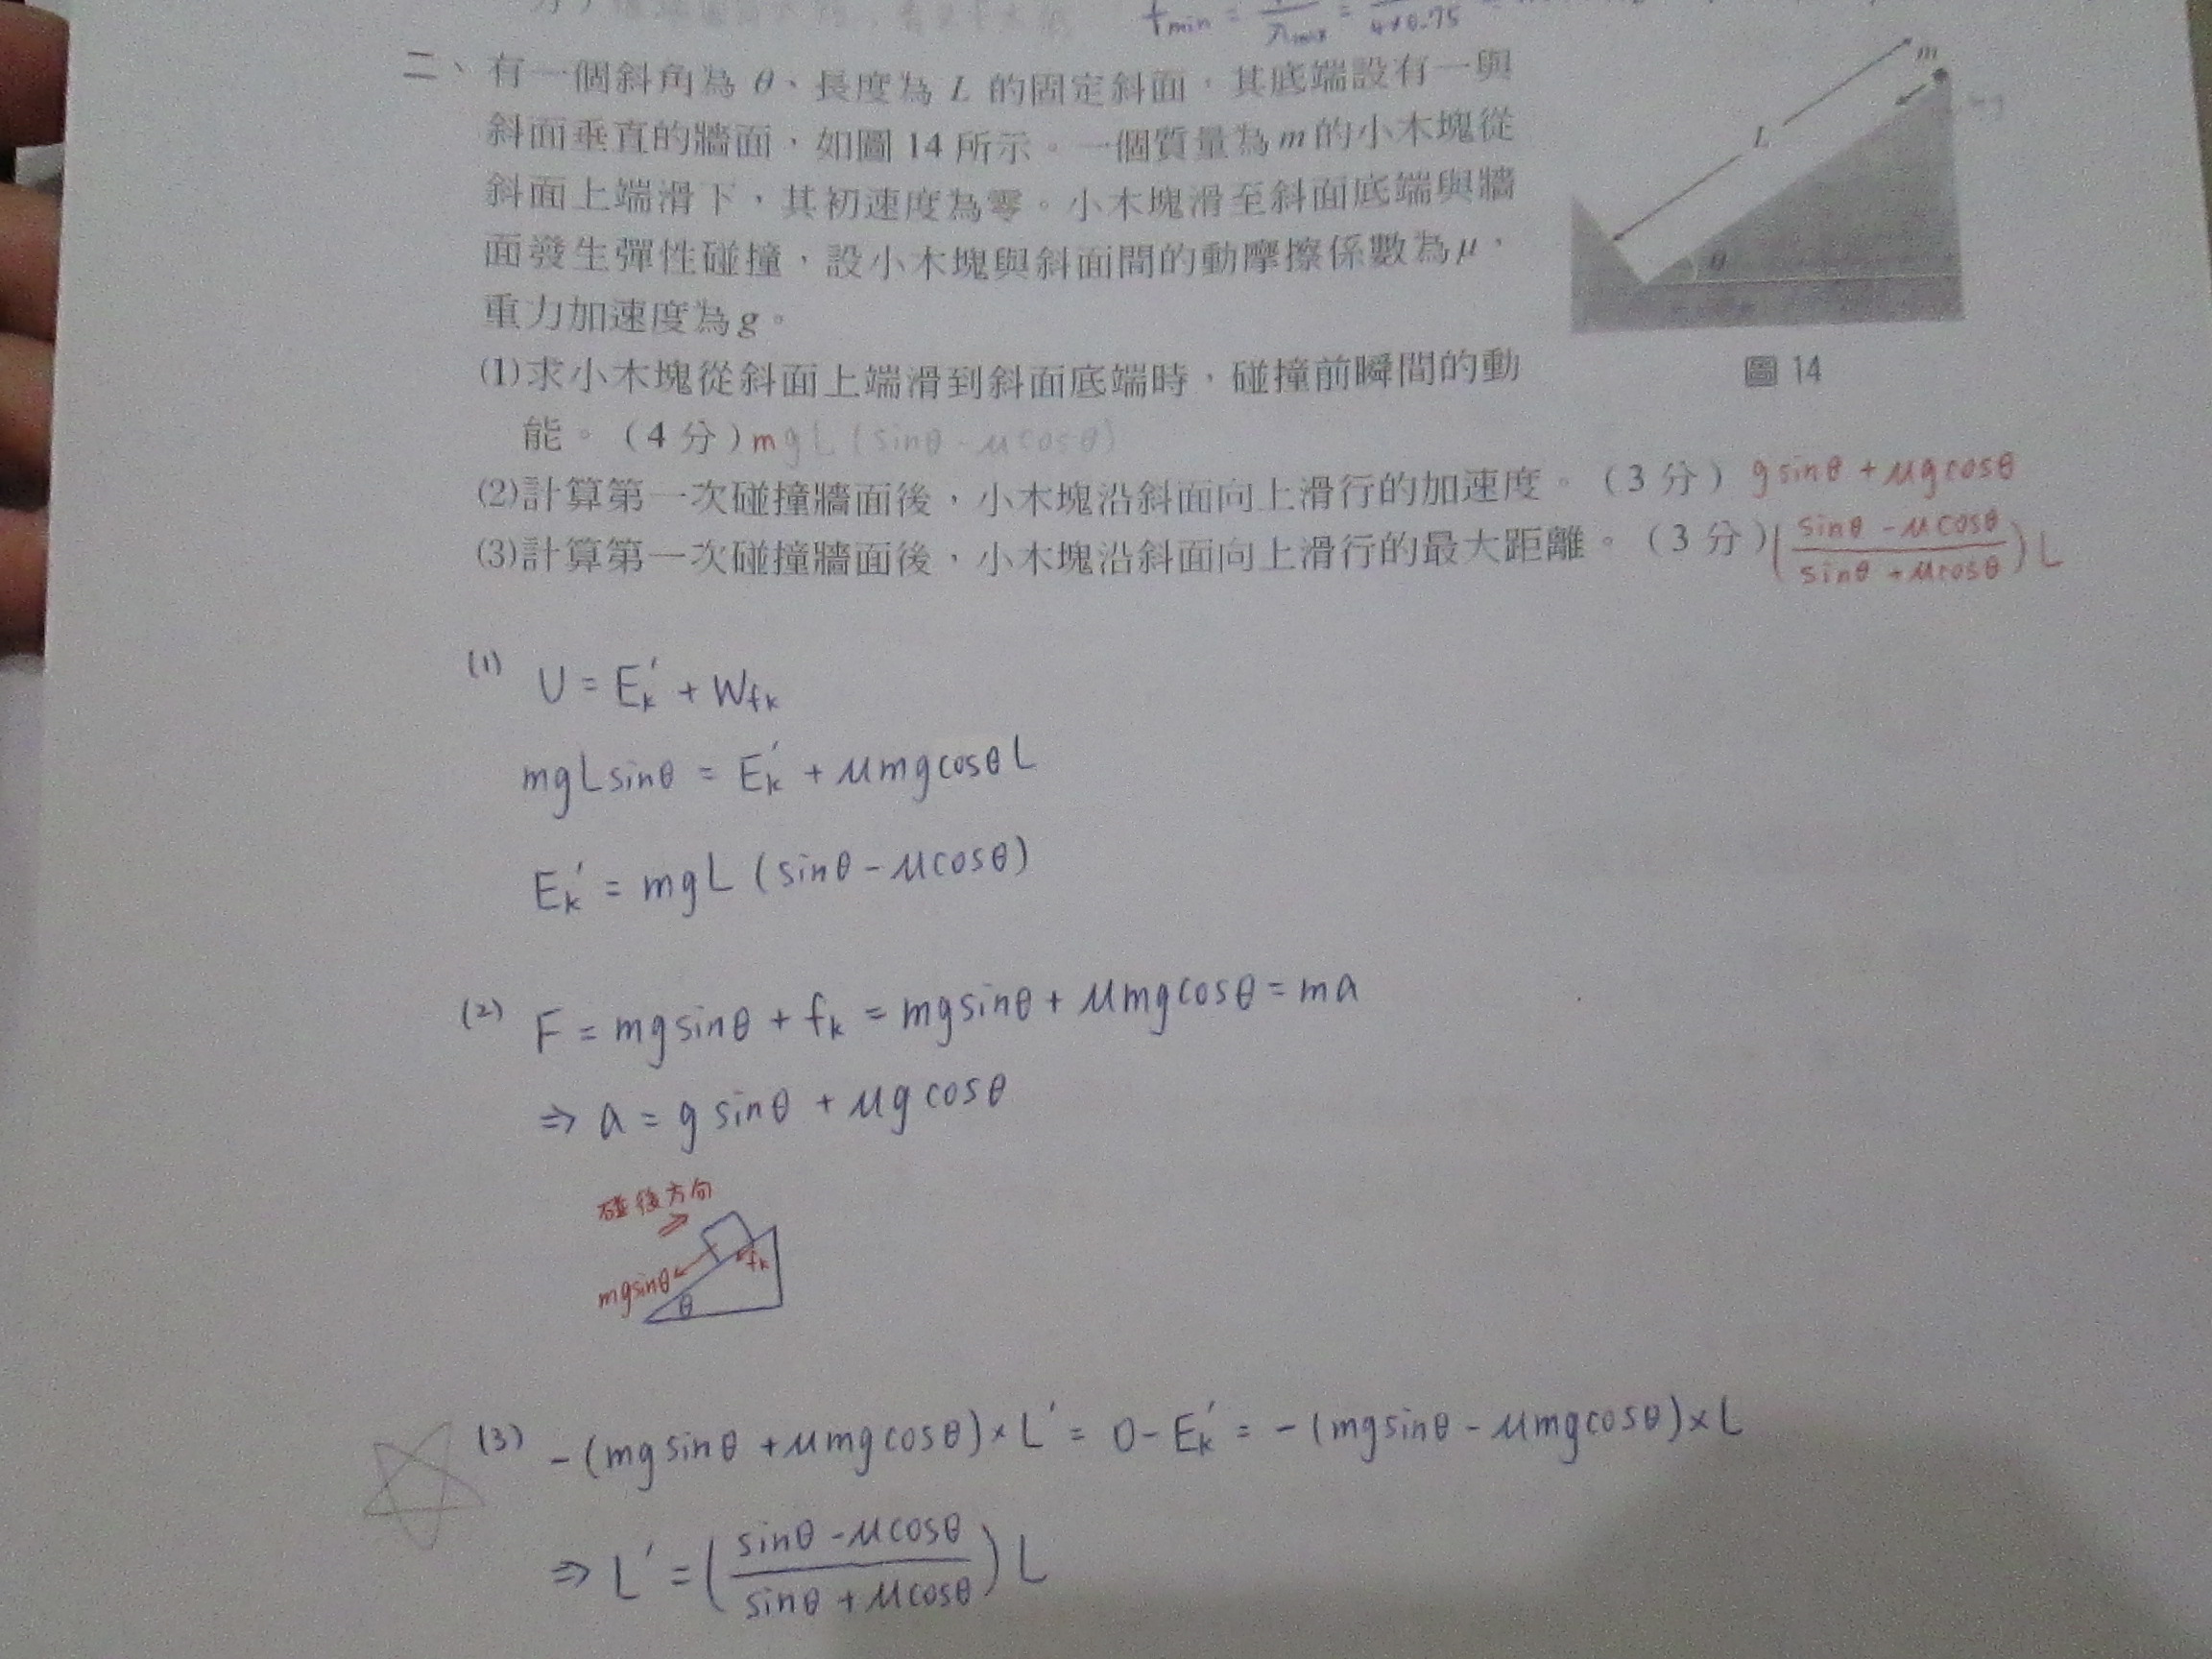 f min = 1/λmax = 1/4×0.75
二、有一個斜角為 θ、長度為 L 的固定斜面,其底端設有一與
斜面垂直的牆面,如圖 14 所示。一個質量為 m 的小木塊從
斜面上端滑下,其初速度為零。小木塊滑至斜面底端與牆
面發生彈性碰撞,設小木塊與斜面間的動摩擦係數為 μ,
重力加速度為 g。
m
L
θ
圖 14
(1)求小木塊從斜面上端滑到斜面底端時,碰撞前瞬間的動
能。(4 分) mgL (sinθ - μcosθ)
(2)計算第一次碰撞牆面後,小木塊沿斜面向上滑行的加速度。(3 分) gsinθ + μgcosθ
(3)計算第一次碰撞牆面後,小木塊沿斜面向上滑行的最大距離。(3 分) (sinθ - μcosθ / sinθ + μcosθ) L
(1) U = Ek' + Wfk
mgLsinθ = Ek' + μmgcosθL
Ek' = mgL (sinθ - μcosθ)
(2) F = mgsinθ + fk = mgsinθ + μmgcosθ = ma
⇒ a = gsinθ + μgcosθ
碰後方向
mgsinθ
fk
θ
(3) -(mgsinθ + μmgcosθ)× L' = 0 - Ek' = -(mgsinθ - μmgcosθ)× L
⇒ L' = (sinθ - μcosθ / sinθ + μcosθ) L